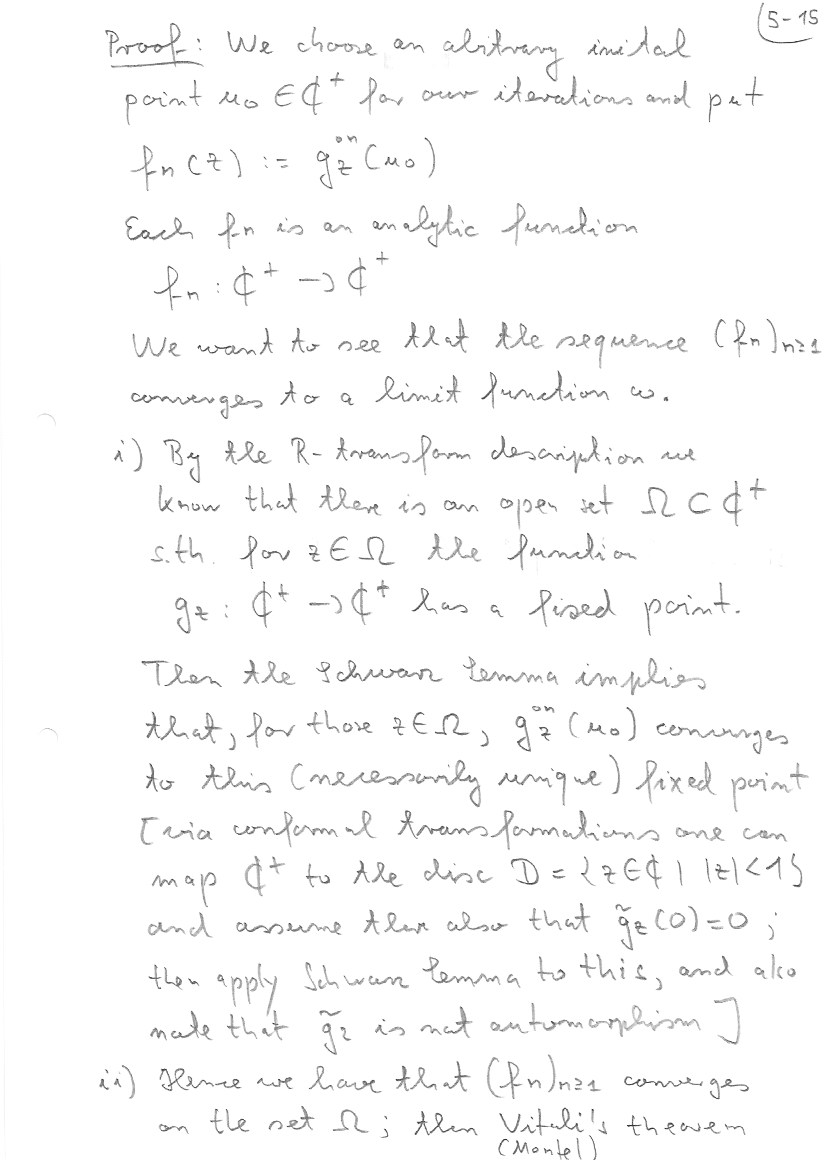 5-15
Proof: We choose an abitrary inital
point u₀ ∈ ℂ⁺ for our iterations and put
fₙ(z) := g_z^{∘n}(u₀)
Each fₙ is an analytic function
fₙ : ℂ⁺ → ℂ⁺
We want to see that the sequence (fₙ)ₙ≥₁
converges to a limit function ω.
i) By the R-transform description we
know that there is an open set Ω ⊂ ℂ⁺
s.th. for z ∈ Ω the function
g_z : ℂ⁺ → ℂ⁺ has a fixed point.
Then the Schwarz Lemma implies
that, for those z ∈ Ω, g_z^{∘n}(u₀) converges
to this (necessarily unique) fixed point
[via conformal transformations one can
map ℂ⁺ to the disc D = {z ∈ ℂ | |z| < 1}
and assume then also that g̃_z(0) = 0;
then apply Schwarz Lemma to this, and also
note that g̃_z is not automorphism]
ii) Hence we have that (fₙ)ₙ≥₁ converges
on the set Ω; then Vitali's theorem
(Montel)